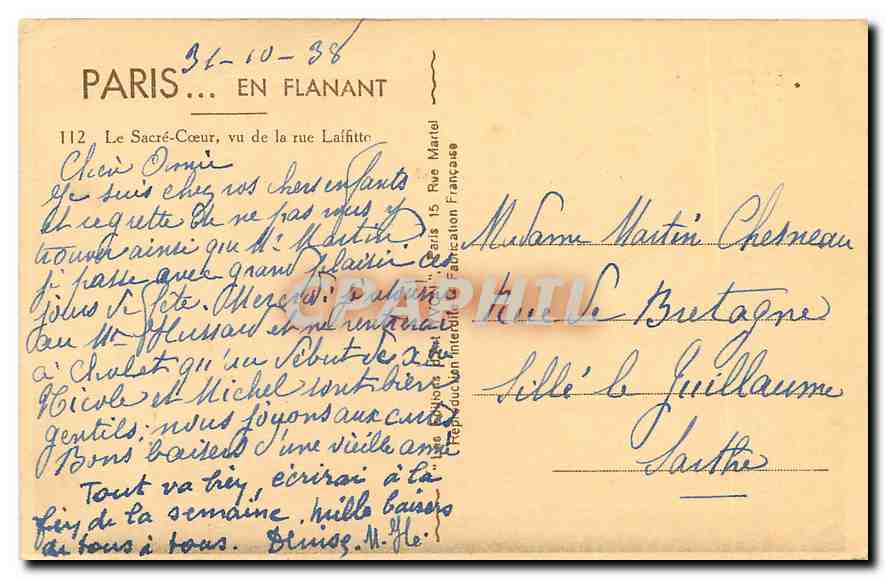 31-10-38
PARIS... EN FLANANT
112 Le Sacré-Cœur, vu de la rue Laffitte
Chère Amie
Je suis chez vos chers enfants
et regrette de ne pas vous y
trouver ainsi que Mr Martin
je passe avec grand plaisir ces
jours de fête. Mercredi je
au Mans et ne rentrerai
à Cholet qu'au début de
Nicole et Michel sont bien
gentils, nous jouons aux
Bons baisers d'une vieille amie
Tout va bien, écrirai à la
fin de la semaine. Mille baisers
de tous à tous. Denise,
"Les Editions d'Art Paris 15 Rue Martel
Reproduction Interdite Fabrication Française
CPAPHIL
Madame Martin Chesneau
Rue de Bretagne
Sillé le Guillaume
Sarthe